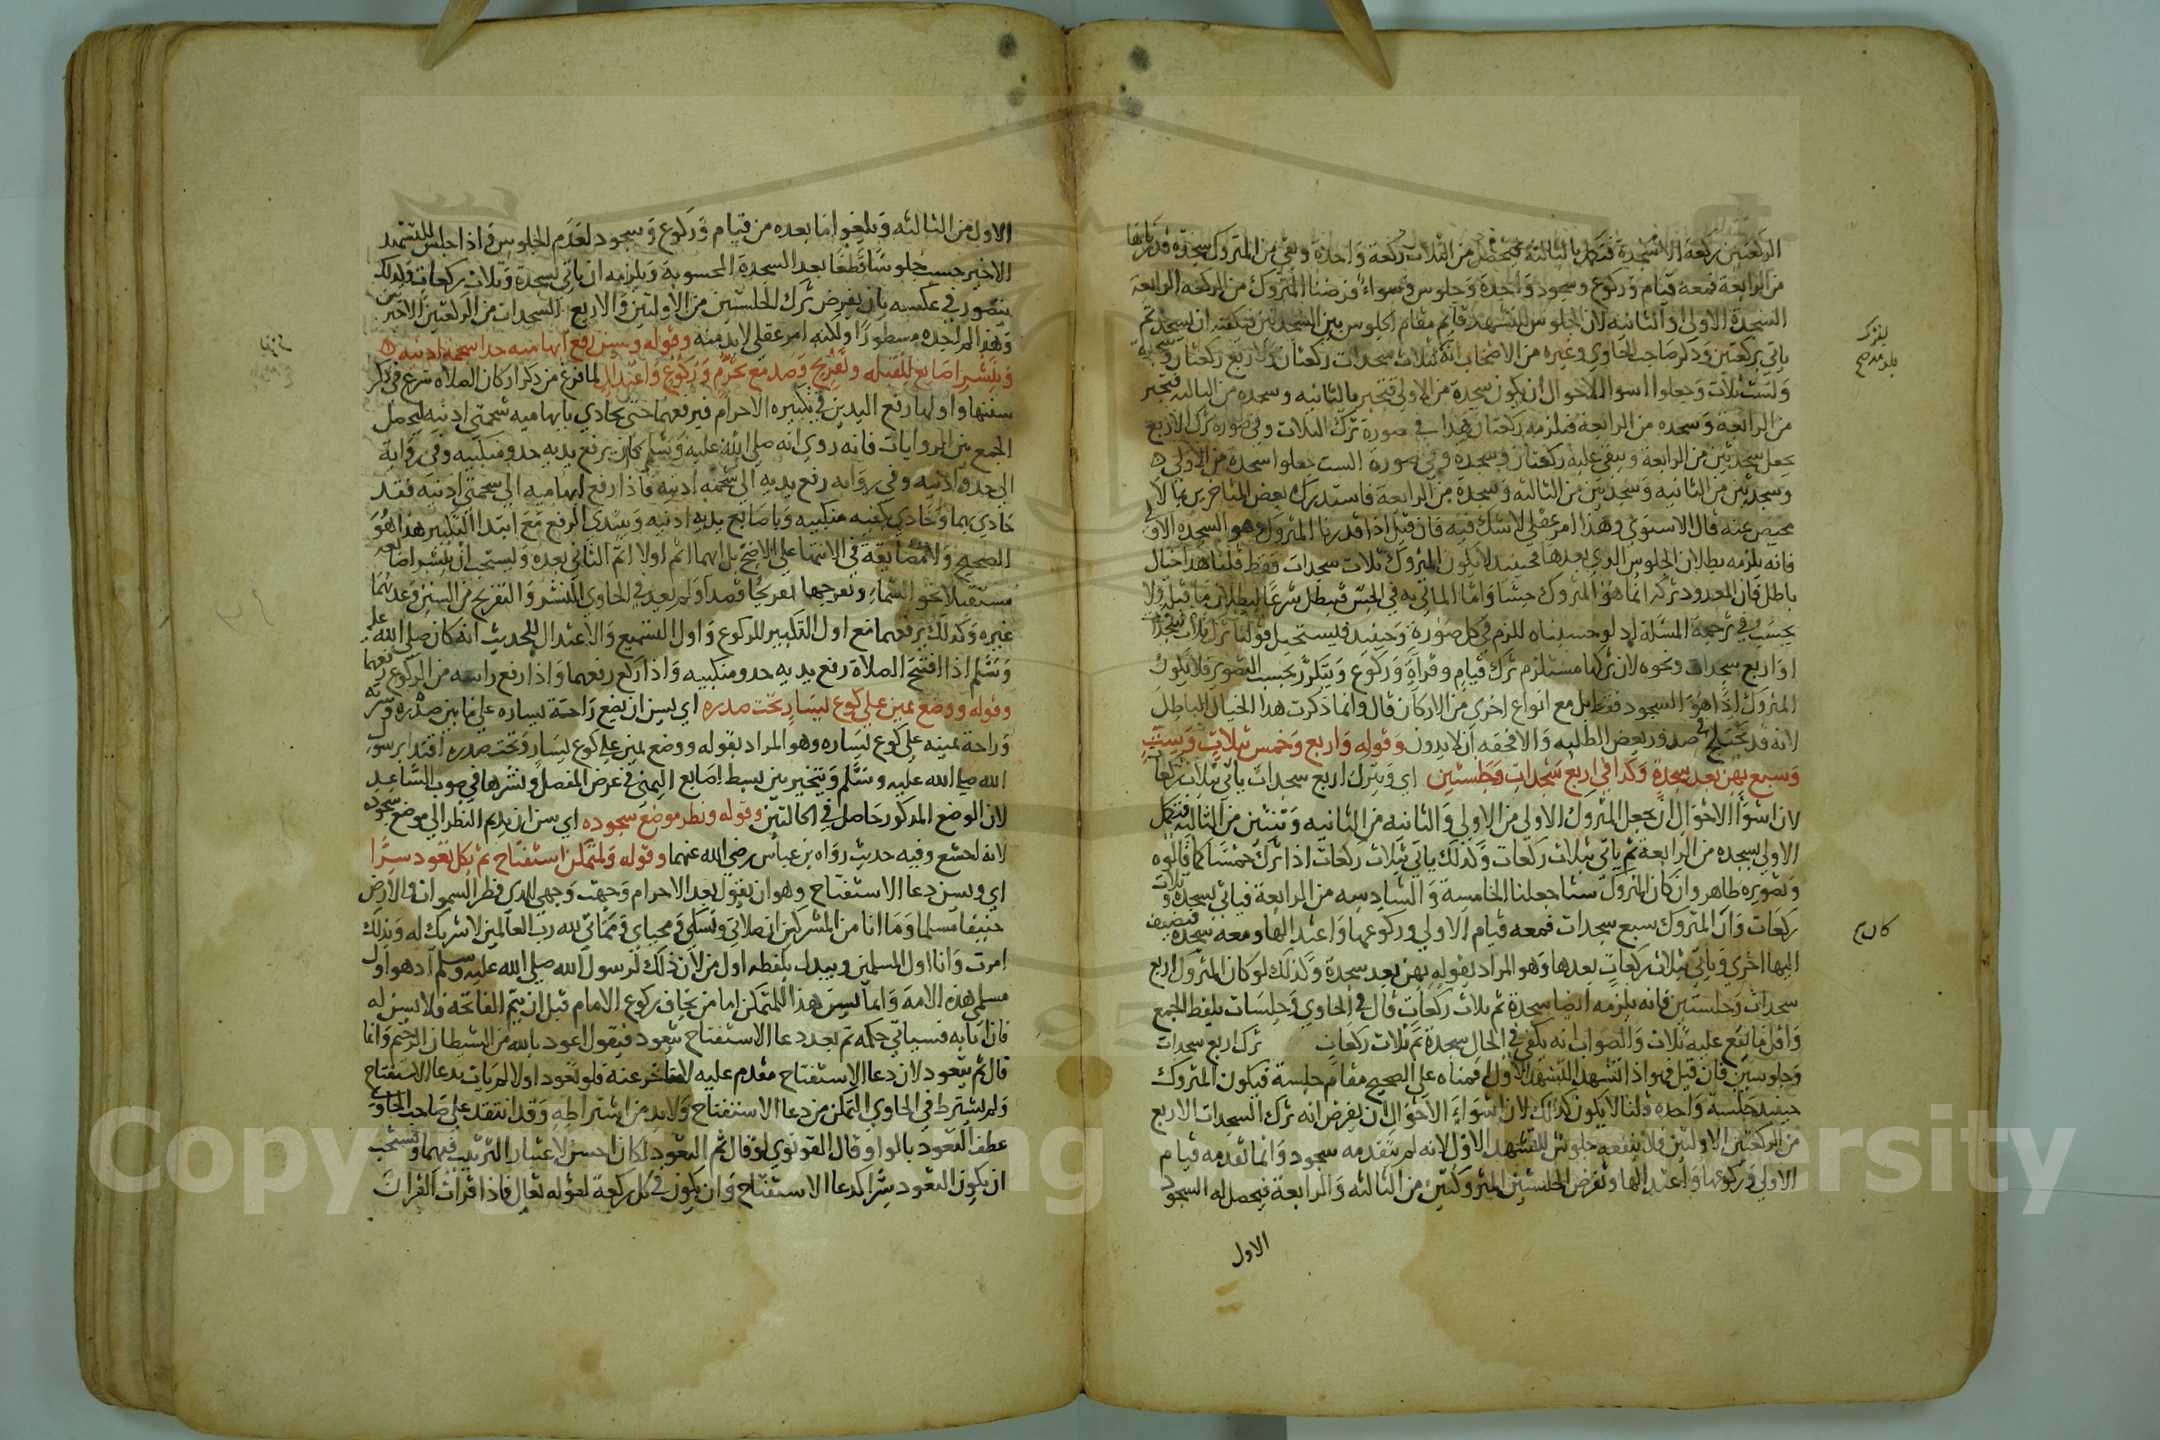 الركعتين ركعة الا سجدة فتكمل بالثالثة فيحصل من الثلاث ركعة واحدة وبقي من المتروك سجدة قدرناها
من الرابعة فمعه قيام وركوع وسجود واحدة وجلوس وسواء فرضنا المتروك من الركعة الرابعة
السجدة الاولى او الثانية لان الجلوس للتشهد قايم مقام الجلوس بين السجدتين فيكفيه ان يسجد ثم
ياتي بركعتين وذكر صاحب الحاوي وغيره من الاصحاب انه لثلاث سجدات ركعتان ولاربع ركعتان وسجدة
ولست ثلاث وجعلوا اسوا الاحوال ان يكون سجدة من الاولى فتجبر بالثانية وسجدة من الثالثة فتجبر
من الرابعة وسجده من الرابعة فيلزمه ركعتان هذا في صورة ترك الثلاث وفي صورة ترك الاربع
جعل سجدتين من الرابعة ويبقى عليه ركعتان وسجدة وفي صورة الست جعلوا سجدة من الاولى
وسجدتين من الثانيه وسجدتين من الثالثه وسجدة من الرابعة فاستدرك بعض المتاخرين بما لا
محيص عنه قال الاسنوي وهذا امر عقلي لا شك فيه فان قيل اذا قدرنا المتروك هو السجدة الاولى
فانه يلزمه بطلان الجلوس الذي بعدها فحينيد لا يكون المتروك ثلاث سجدات فقط قلنا هذا خيال
باطل فان المعدود تركه انما هو المتروك حسا واما الماتي به في الحس فيبطل شرعا لبطلان ما قبله ولا
يحسب في ترجمة المسئلة اد لو حسبناه للزم في كل صورة وحينيد فيستحيل قولنا ترك ثلاث سجدات
او اربع سجدات ونحوه لان تركها مستلزم ترك قيام وقراة وركوع ويتكرر بحسب الصور فلا يكون
المتروك اذا هو السجود فقط بل مع انواع اخرى من الاركان قال وانما ذكرت هذا الخيال الباطل
لانه قد يختلج في صدور بعض الطلبه والا فحقه ان لا يدون وقوله واربع وخمس بثلاث وبست
وسبع بهن بعد سجدة وكذا في اربع سجدات وجلستين اي ويترك اربع سجدات ياتي بثلاث ركعات
لان اسوا الاحوال ان يجعل المتروك الاولى من الاولى والثانيه من الثانيه وثنتين من الثالثه فتكمل
الاولى بسجده من الرابعة ثم ياتي بثلاث ركعات وكذلك ياتي بثلاث ركعات اذا ترك خمسا كما قالوه
وتصويره ظاهر وان كان المتروك ستا جعلنا الخامسة والسادسه من الرابعة فياتي بسجدة وثلاث
ركعات وان المتروك سبع سجدات فمعه قيام الاولى وركوعها واعتدالها ومعه سجدة فيضيف
اليها اخري وياتي بثلاث ركعات بعدها وهو المراد بقوله بهن بعد سجدة وكذلك لو كان المتروك اربع
سجدات وجلستين فانه يلزمه ايضا سجدة ثم ثلاث ركعات قال في الحاوي وجلسات بلفظ الجمع
واقل ما تقع عليه ثلاث والصواب انه يكفي في الحال سجدة ثم ثلاث ركعات ترك اربع سجدات
وجلوسين فان قيل فهو اذا تشهد التشهد الاول اقمناه على الصحيح مقام جلسة فيكون المتروك
حينيد جلسة واحده قلنا لا يكون كذلك لان اسواء الاحوال ان يفرض انه ترك السجدات الاربع
من الركعتين الاولتين فلا ينفعه جلوس للتشهد الاول لانه لم يتقدمه سجود وانما تقدمه قيام
الاولى وركوعها واعتدالها وتفرض الجلستين المتروكتين من الثالثه والرابعة فيحصل له السجود
الاول
كارم
الاول من الثالثه ويلغوا ما بعده من قيام وركوع وسجود لعدم الجلوس فاذا جلس للتشهد
الاخير حسب جلوسا قطعا بعد السجدة المحسوبة ويلزمه ان ياتي بسجدة وثلاث ركعات وكذلك
يتصور في عكسه بان يفرض ترك الجلستين من الاولتين والاربع السجدات من الركعتين الاخيرتين
وهذا لم اجده مسطورا ولكنه امر عقلي لا بد منه وقوله وسن رفع ابهاميه حذا شحمة ادنيه
وبنشر اصابع للقبله وتفريج وصد مع تحرم وركوع واعتدال لما فرغ من ذكر اركان الصلاه شرع في ذكر
سننها واولها رفع اليدين في تكبيره الاحرام فيرفعهما حتى يحادي بابهاميه شحمتي ادنيه ليحصل
الجمع بين الروايات فانه روي انه صلى الله عليه وسلم كان يرفع يديه حدو منكبيه وفي رواية
الى حدو ادنيه وفي روايه رفع يديه الى شحمة ادنيه فاذا رفع ابهاميه الى شحمتي ادنيه فقد
حادي بهما وحادي كفيه منكبيه وباصابع يديه ادنيه ويبتدي الرفع مع ابتدا التكبير هذا هو
الصحيح ولا مضايقة في الانتها على الاصح بل ايهما اتم اولا اتم الثاني بعده ويستحب ان ينشر اصابعه
مستقبلا نحو السماء وتفريجها تفريجا قصدا ولم يعد في الحاوي النشر والتفريج من السنن وعدهما
غيره وكذلك يرفعهما مع اول التكبير للركوع واول التسميع والاعتدال للحديث انه كان صلى الله عليه
وسلم اذا افتتح الصلاة رفع يديه حدو منكبيه واذا ركع رفعهما واذا رفع راسه من الركوع رفعهما
وقوله ووضع يمين على كوع يسار تحت صدره اي يسن ان يضع راحة يساره على ما بين صدره وسرته
وراحة يمينه على كوع يساره وهو المراد بقوله ووضع يمين على كوع يسار وتحت صدره اقتدا برسول
الله صلى الله عليه وسلم ويتخير بين بسط اصابع اليمنى في عرض المفصل ونشرها في صوب الساعد
لان الوضع المذكور حاصل في الحالتين وقوله ونظر موضع سجوده اي سن ان يديم النظر الى موضع سجوده
لانه اخشع وفيه حديث رواه ابن عباس رضي الله عنهما وقوله ولمتمكن استفتاح ثم بكل تعود سرا
اي ويسن دعا الاستفتاح وهو ان يقول بعد الاحرام وجهت وجهي للدي فطر السموات والارض
حنيفا مسلما وما انا من المشركين ان صلاتي ونسكي ومحياي ومماتي لله رب العالمين لا شريك له وبذلك
امرت وانا اول المسلمين ويبدل بلفظه اول من لان ذلك لرسول الله صلى الله عليه وسلم اد هو اول
مسلمي هذه الامة وانما يسن هذا للمتمكن اما من يخاف ركوع الامام قبل ان يتم الفاتحة فلا يسن له
فان اتا به فسياتي حكمه ثم بعد دعا الاستفتاح يتعود فيقول اعود بالله من الشيطان الرجيم وانما
قال ثم يتعود لان دعا الاستفتاح مقدم عليه لا متاخر عنه فلو تعود اولا لم يات بدعا الاستفتاح
ولم يشترط في الحاوي التمكن من دعا الاستفتاح ولا بد من اشتراطه وقد انتقد على صاحب الحاوي
عطف التعود بالواو قال القونوي لو قال ثم التعود لكان احسن لاعتبار الترتيب فيهما ويستحب
ان يكون التعود سرا كدعا الاستفتاح وان يكون في كل ركعة لقوله تعالى فاذا قرات القران
Copyright © King Saud University